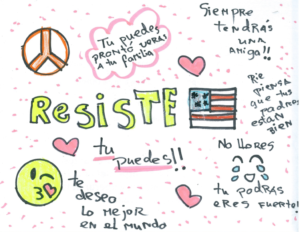 Siempre
tendrás
una
amiga!!
Tu puedes
pronto verás
a tu familia
Resiste
piensa
que tus
padres
están
bien
tu
puedes!!
No llores
te
deseo
lo mejor
en el mundo
tu podrás
eres fuerte!